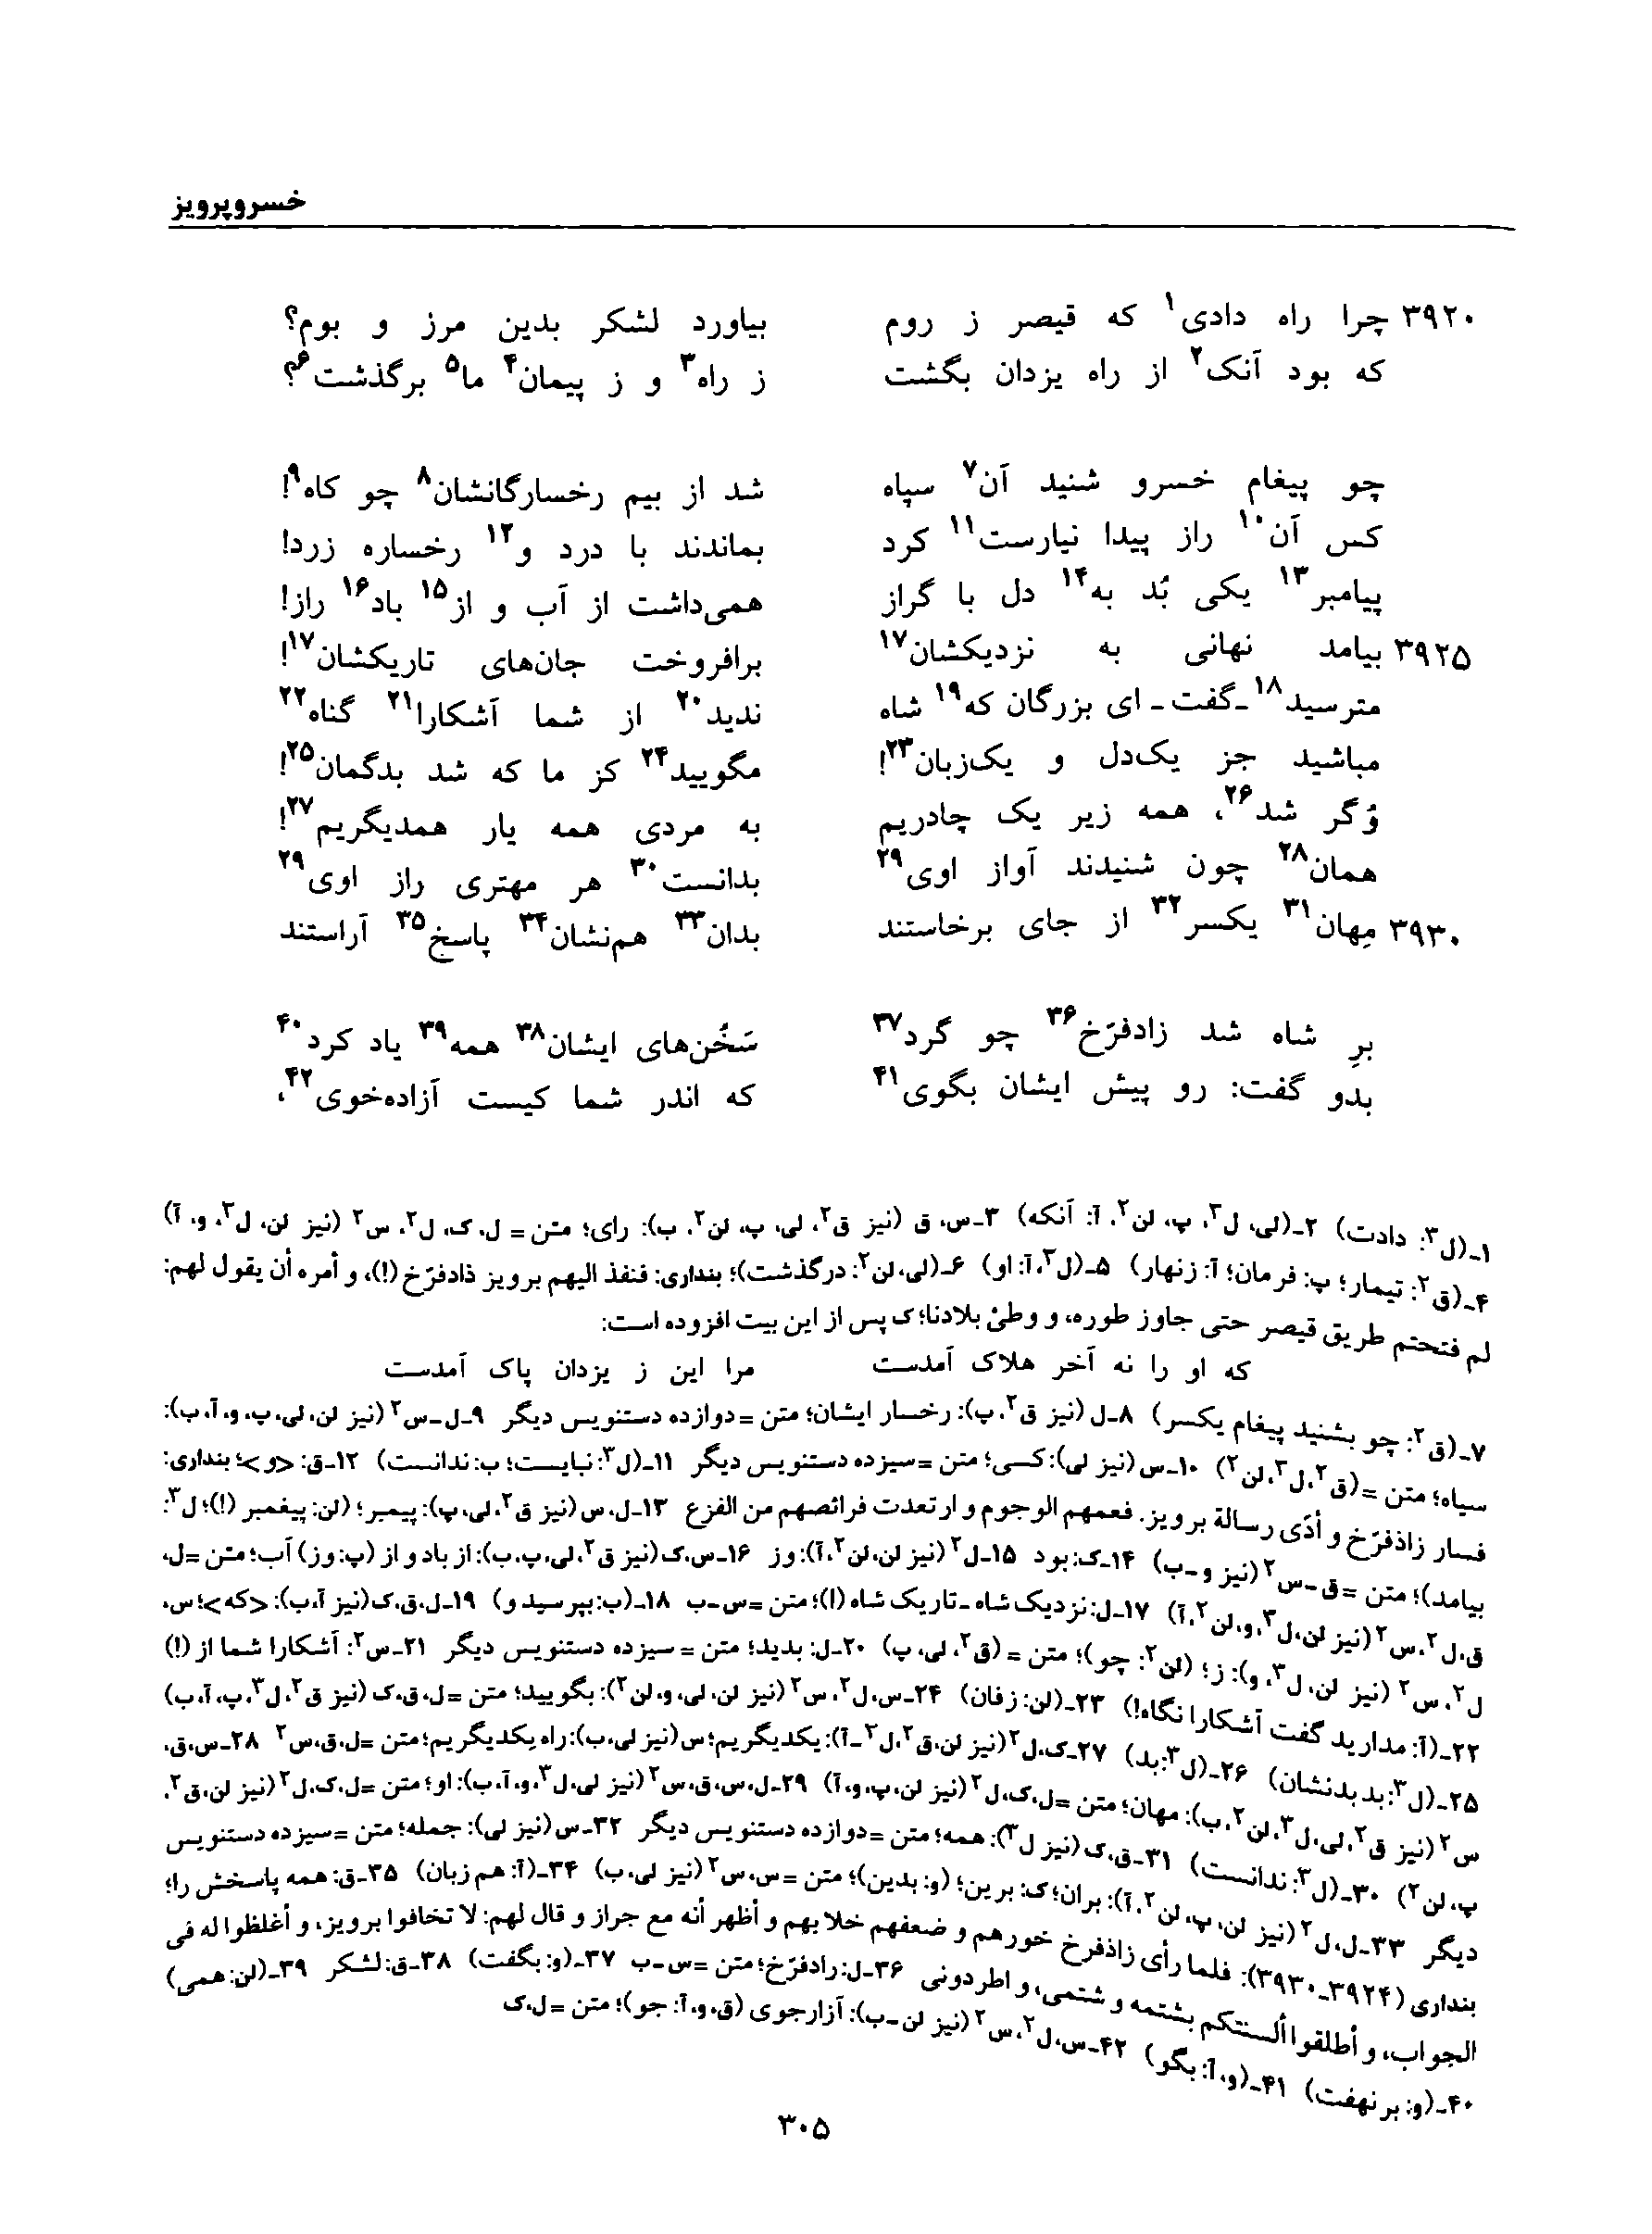 خسروپرویز
۳۹۲۰ چرا راه دادی۱ که قیصر ز روم    بیاورد لشکر بدین مرز و بوم؟
که بود آنک۲ از راه یزدان بگشت    ز راه۳ و ز پیمان۴ ما۵ برگذشت۶؟
چو پیغام خسرو شنید آن۷ سپاه    شد از بیم رخسارگانشان۸ چو کاه۹!
کس آن۱۰ راز پیدا نیارست۱۱ کرد    بماندند با درد و۱۲ رخساره زرد!
پیامبر۱۳ یکی بُد به۱۴ دل با گراز    همی‌داشت از آب و از۱۵ باد۱۶ راز!
۳۹۲۵ بیامد نهانی به نزدیکشان۱۷    برافروخت جان‌های تاریکشان۱۷!
مترسید۱۸ـ گفت ـ ای بزرگان که۱۹ شاه    ندید۲۰ از شما آشکارا۲۱ گناه۲۲
مباشید جز یک‌دل و یک‌زبان۲۳!    مگویید۲۴ کز ما که شد بدگمان۲۵!
وُگر شد۲۶، همه زیر یک چادریم    به مردی همه یار همدیگریم۲۷!
همان۲۸ چون شنیدند آواز اوی۲۹    بدانست۳۰ هر مهتری راز اوی۲۹
۳۹۳۰ مِهان۳۱ یکسر۳۲ از جای برخاستند    بدان۳۳ هم‌نشان۳۴ پاسخ۳۵ آراستند
برِ شاه شد زادفرّخ۳۶ چو گرد۳۷    سَخُن‌های ایشان۳۸ همه۳۹ یاد کرد۴۰
بدو گفت: رو پیش ایشان بگوی۴۱    که اندر شما کیست آزاده‌خوی۴۲،
۱ـ(ل۳: دادت) ۲ـ(لی، ل۳، پ، لن۲، آ: آنکه) ۳ـس، ق (نیز ق۲، لی، پ، لن۲، ب): رای؛ متن = ل، ک، ل۲، س۲ (نیز لن، ل۳، و، آ)
۴ـ(ق۲: تیمار؛ پ: فرمان؛ آ: زنهار) ۵ـ(ل۳، آ: او) ۶ـ(لی، لن۲: درگذشت)؛ بنداری: فنفذ الیهم برویز ذادفرّخ (!)، و أمره أن یقول لهم:
لم فتحتم طریق قیصر حتی جاوز طوره، و وطئ بلادنا؛ ک پس از این بیت افزوده است:
که او را نه آخر هلاک آمدست    مرا این ز یزدان پاک آمدست
۷ـ(ق۲: چو بشنید پیغام یکسر) ۸ـل (نیز ق۲، پ): رخسار ایشان؛ متن = دوازده دستنویس دیگر ۹ـل ـ س۲ (نیز لن، لی، پ، و، آ، ب):
سیاه؛ متن = (ق۲، ل۳، لن۲) ۱۰ـس (نیز لی): کسی؛ متن = سیزده دستنویس دیگر ۱۱ـ(ل۳: نبایست؛ ب: ندانست) ۱۲ـق: <و>؛ بنداری:
فسار زاذفرّخ و أدّی رسالة برویز. فعمهم الوجوم و ارتعدت فرائصهم من الفزع ۱۳ـل، س (نیز ق۲، لی، پ): پیمبر؛ (لن: پیغمبر (!)؛ ل۳:
بیامد)؛ متن = ق ـ س۲ (نیز و ـ ب) ۱۴ـک: بود ۱۵ـل۲ (نیز لن، لن۲، آ): وز ۱۶ـس، ک (نیز ق۲، لی، پ، ب): از باد و از (پ: وز) آب؛ متن = ل،
ق، ل۲، س۲ (نیز لن، ل۳، و، لن۲، آ) ۱۷ـل: نزدیک شاه ـ تاریک شاه (!)؛ متن = س ـ ب ۱۸ـ(ب: بپرسید و) ۱۹ـل، ق، ک (نیز آ، ب): <که>؛ س،
ل۲، س۲ (نیز لن، ل۳، و): ز؛ (لن۲: چو)؛ متن = (ق۲، لی، پ) ۲۰ـل: بدید؛ متن = سیزده دستنویس دیگر ۲۱ـس۲: آشکارا شما از (!)
۲۲ـ(آ: مدارید گفت آشکارا نگاه!) ۲۳ـ(لن: زفان) ۲۴ـس، ل۲، س۲ (نیز لن، لی، و، لن۲): بگویید؛ متن = ل، ق، ک (نیز ق۲، ل۳، پ، آ، ب)
۲۵ـ(ل۳: بد بدنشان) ۲۶ـ(ل۳: بد) ۲۷ـک، ل۲ (نیز لن، ق۲، ل۳ ـ آ): یکدیگریم؛ س (نیز لی، ب): راه یکدیگریم؛ متن = ل، ق، س۲ ۲۸ـس، ق،
س۲ (نیز ق۲، لی، ل۳، لن۲، ب): مهان؛ متن = ل، ک، ل۲ (نیز لن، پ، و، آ) ۲۹ـل، س، ق، س۲ (نیز لی، ل۳، و، آ، ب): او؛ متن = ل، ک، ل۲ (نیز لن، ق۲،
پ، لن۲) ۳۰ـ(ل۳: ندانست) ۳۱ـق، ک (نیز ل۳): همه؛ متن = دوازده دستنویس دیگر ۳۲ـس (نیز لی): جمله؛ متن = سیزده دستنویس
دیگر ۳۳ـل، ل۲ (نیز لن، پ، لن۲، آ): بران؛ ک: برین؛ (و: بدین)؛ متن = س، س۲ (نیز لی، ب) ۳۴ـ(آ: هم زبان) ۳۵ـق: همه پاسخش را؛
بنداری (۳۹۲۴ـ۳۹۳۰): فلما رأی زاذفرخ خورهم و ضعفهم خلا بهم و أظهر أنه مع جراز و قال لهم: لا تخافوا برویز، و أغلظوا له فی
الجواب، و أطلقوا ألسنتکم بشتمه و شتمی، و اطردونی ۳۶ـل: رادفرّخ؛ متن = س ـ ب ۳۷ـ(و: بگفت) ۳۸ـق: لشکر ۳۹ـ(لن: همی)
۴۰ـ(و: بر نهفت) ۴۱ـ(و، آ: بگو) ۴۲ـس، ل۲، س۲ (نیز لن ـ ب): آزارجوی (ق، و، آ: جو)؛ متن = ل، ک
۳۰۵